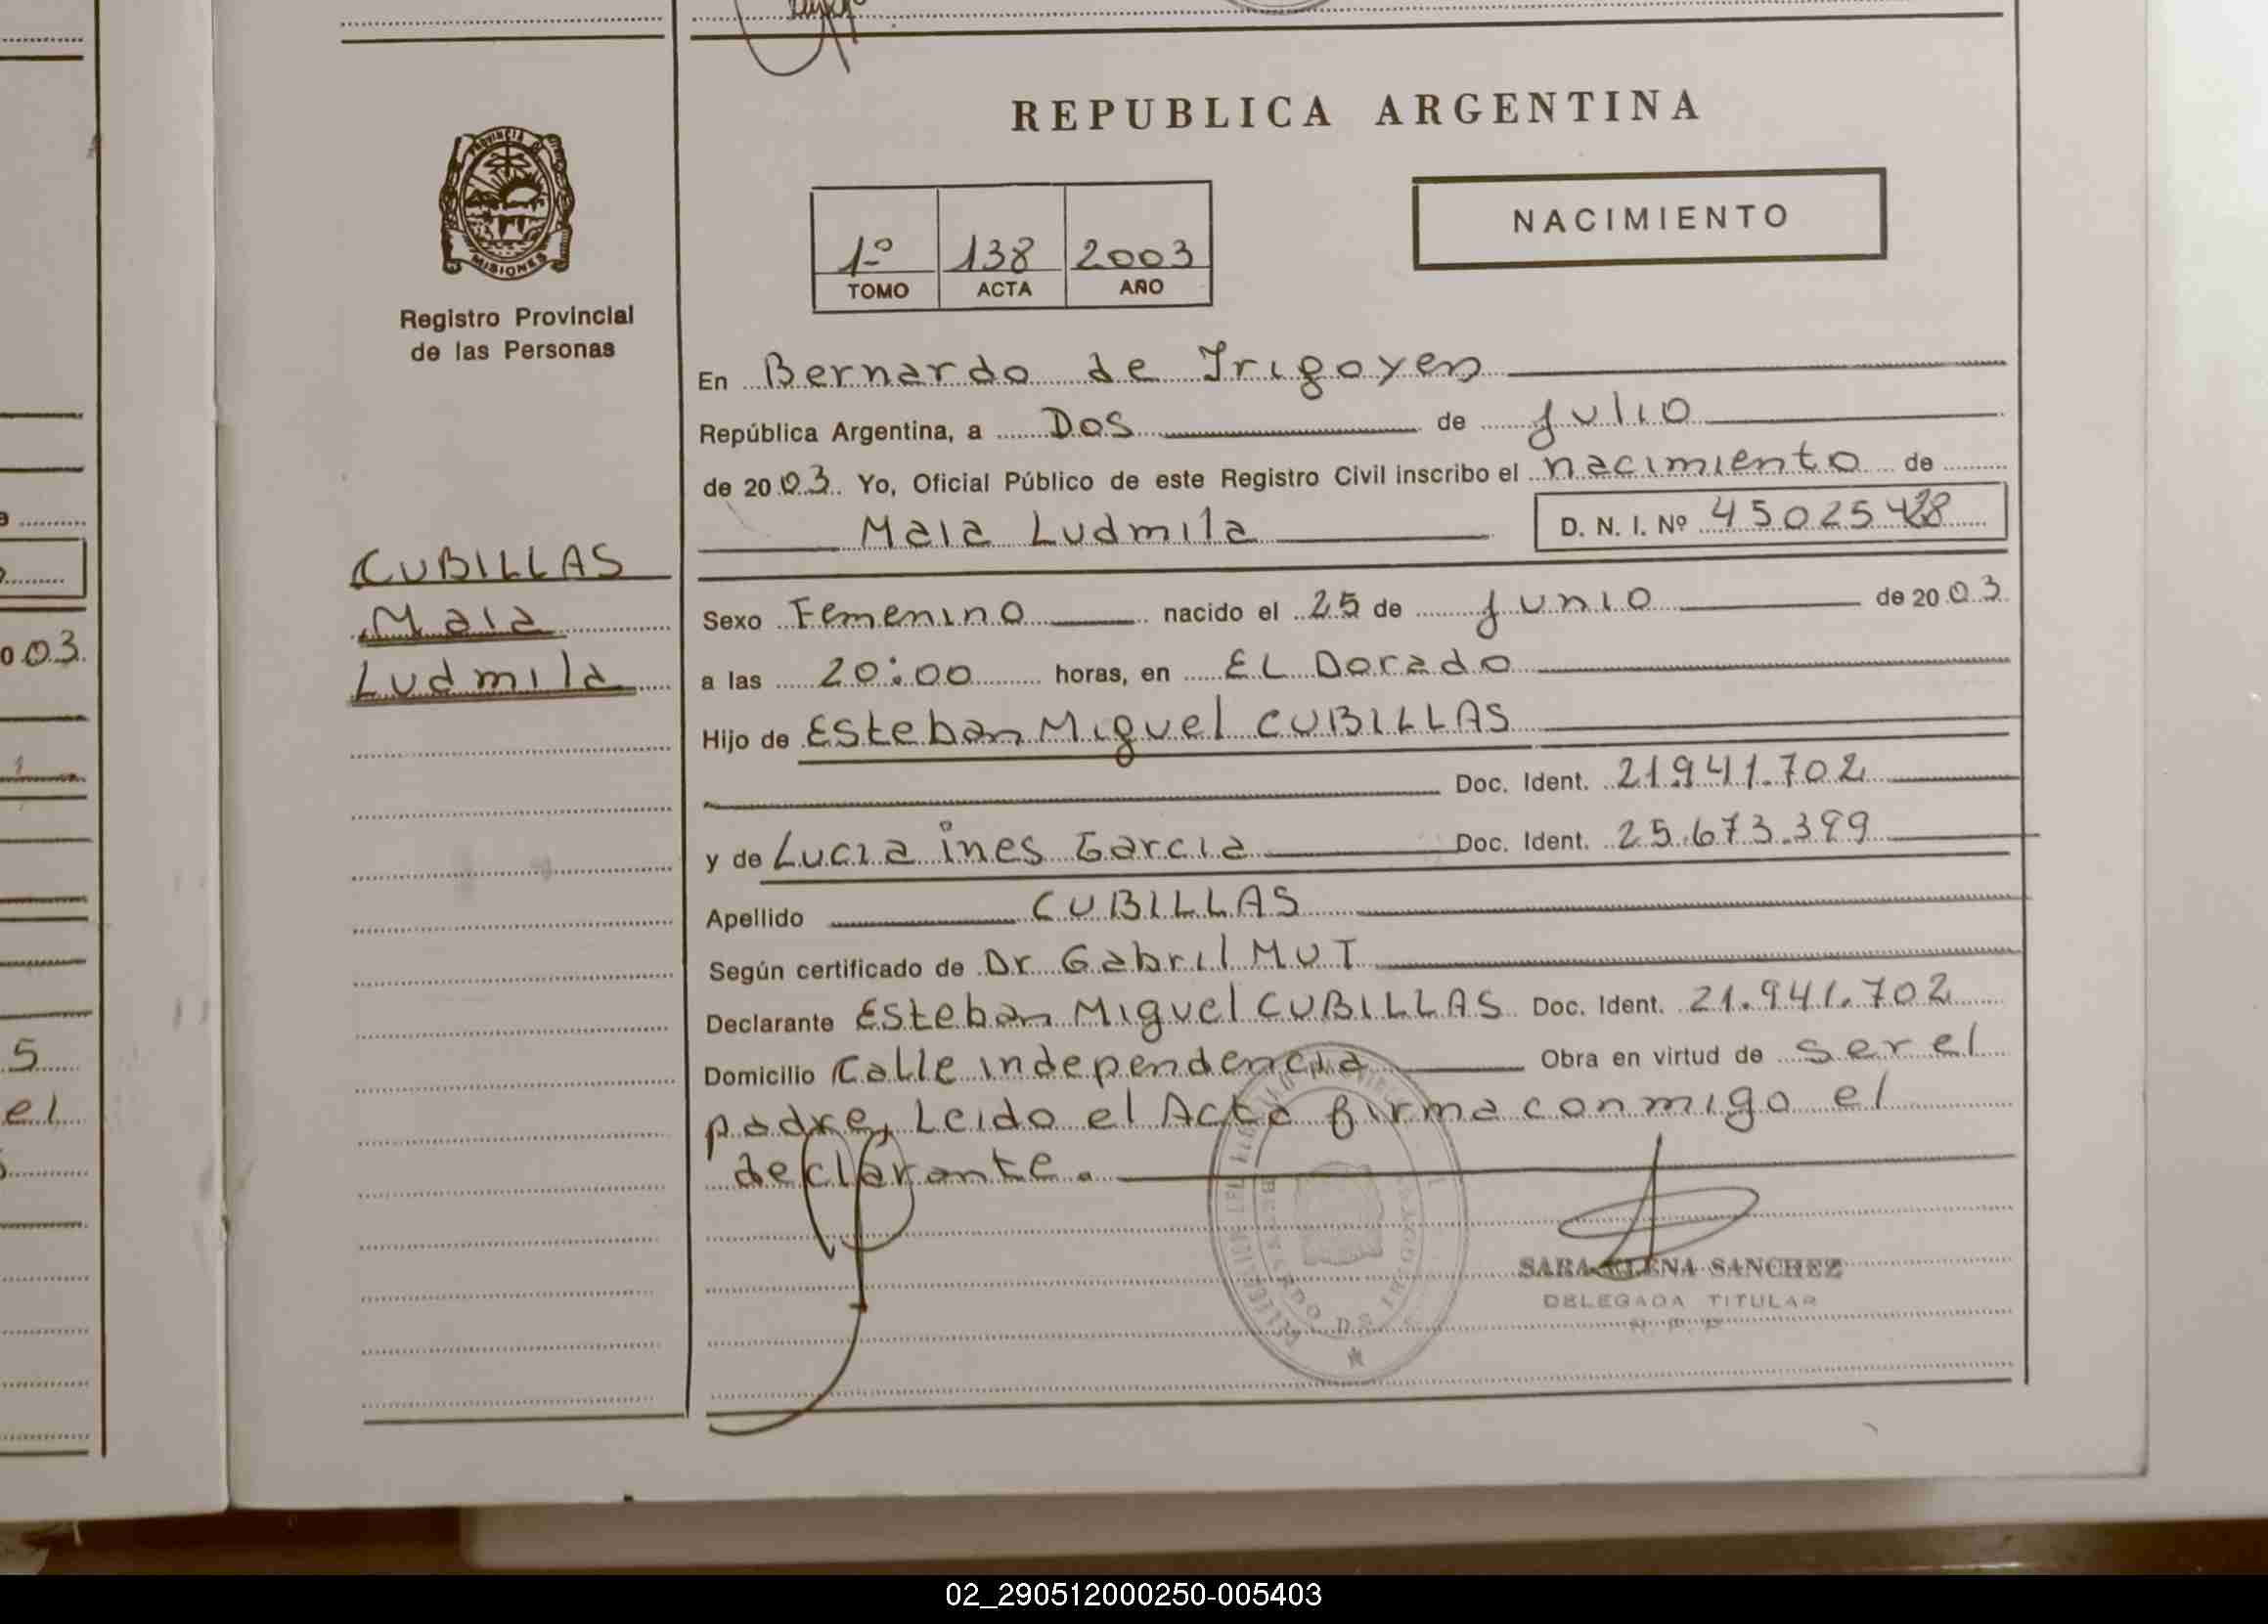 REPUBLICA ARGENTINA
PROVINCIA DE
MISIONES
Registro Provincial
de las Personas
1º 138 2003
TOMO ACTA AÑO
NACIMIENTO
En Bernardo de Irigoyen
República Argentina, a Dos de Julio
de 2003. Yo, Oficial Público de este Registro Civil inscribo el nacimiento de
Maia Ludmila D. N. I. Nº
CUBILLAS
Maia
Ludmila
Sexo Femenino nacido el 25 de Junio de 2003
a las 20:00 horas, en EL Dorado
Hijo de Esteban Miguel CUBILLAS
Doc. Ident. 21.941.702
y de Lucia ines Garcia Doc. Ident. 25.673.399
Apellido CUBILLAS
Según certificado de Dr Gabril MUT
Declarante Esteban Miguel CUBILLAS Doc. Ident. 21.941.702
Domicilio Calle independencia Obra en virtud de ser el
padre, Leido el Acta firma conmigo el
declarante.
SARA ELENA SANCHEZ
DELEGADA TITULAR
R. P. P.
03.
5
el
02_290512000250-005403